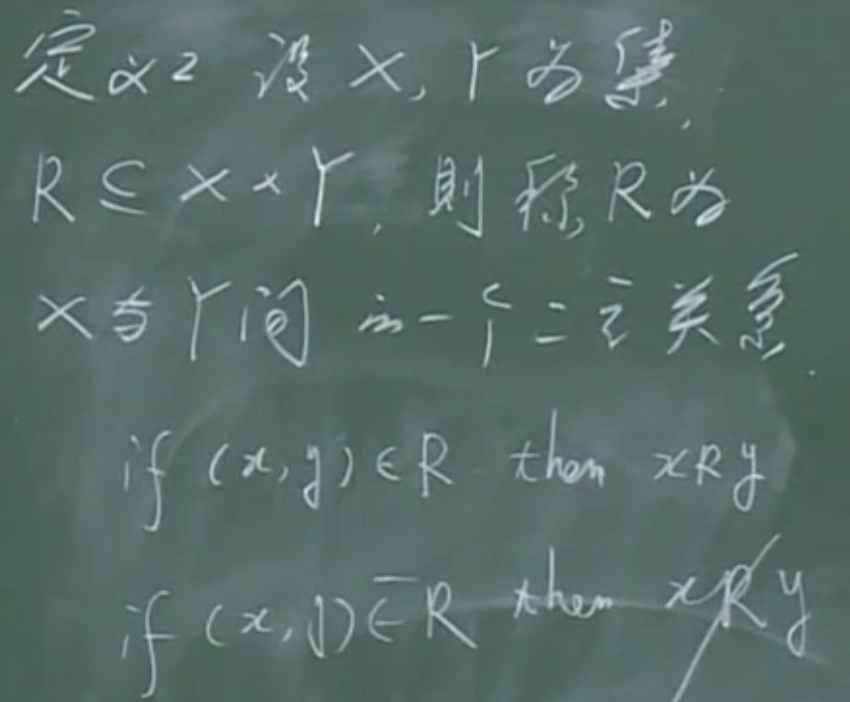 定义2 设 X, Y 为集,
R ⊆ X × Y, 则称 R 为
X 与 Y 间的一个二元关系.
if (x, y) ∈ R then xRy
if (x, y) ∈̅ R then xR̸y